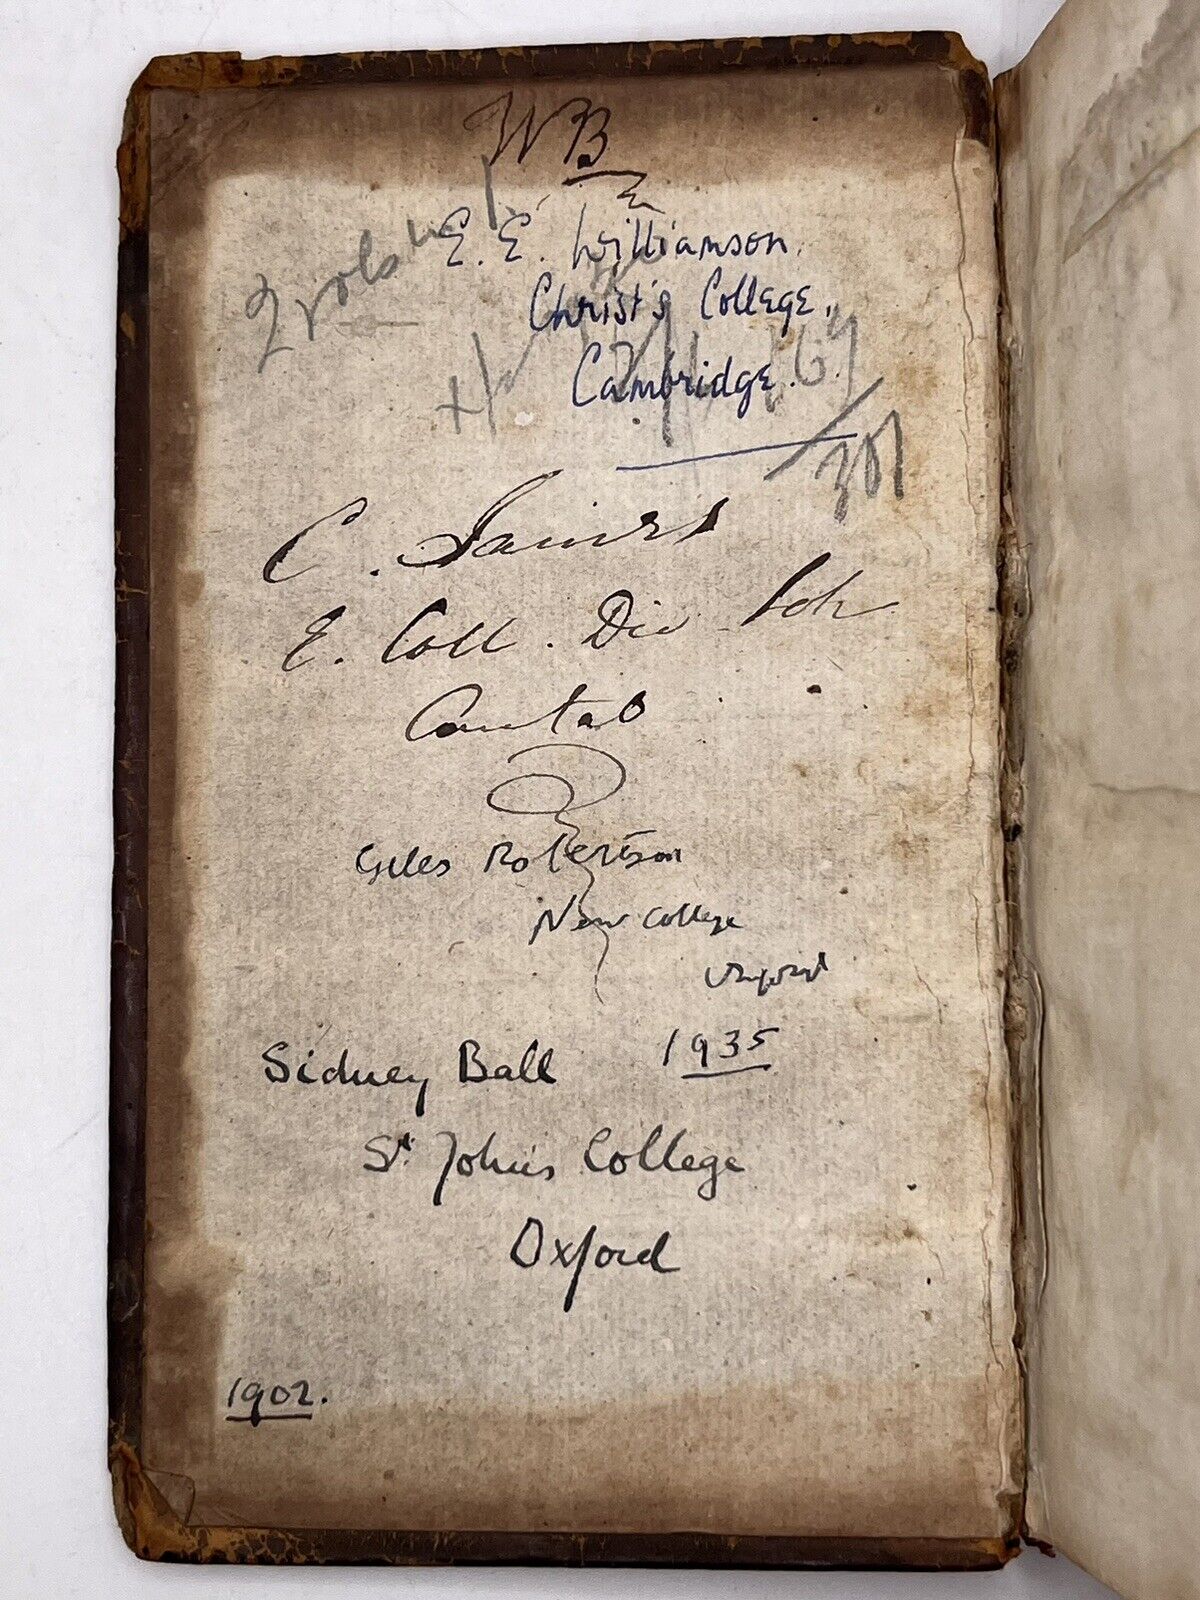 WB
2 vols in 1
E. E. Williamson.
Christ's College.
Cambridge.
C.
E. Coll. Div Sch
Cantab
Giles Robertson
New College
Oxford
1935
Sidney Ball
St. John's College
Oxford
1902.